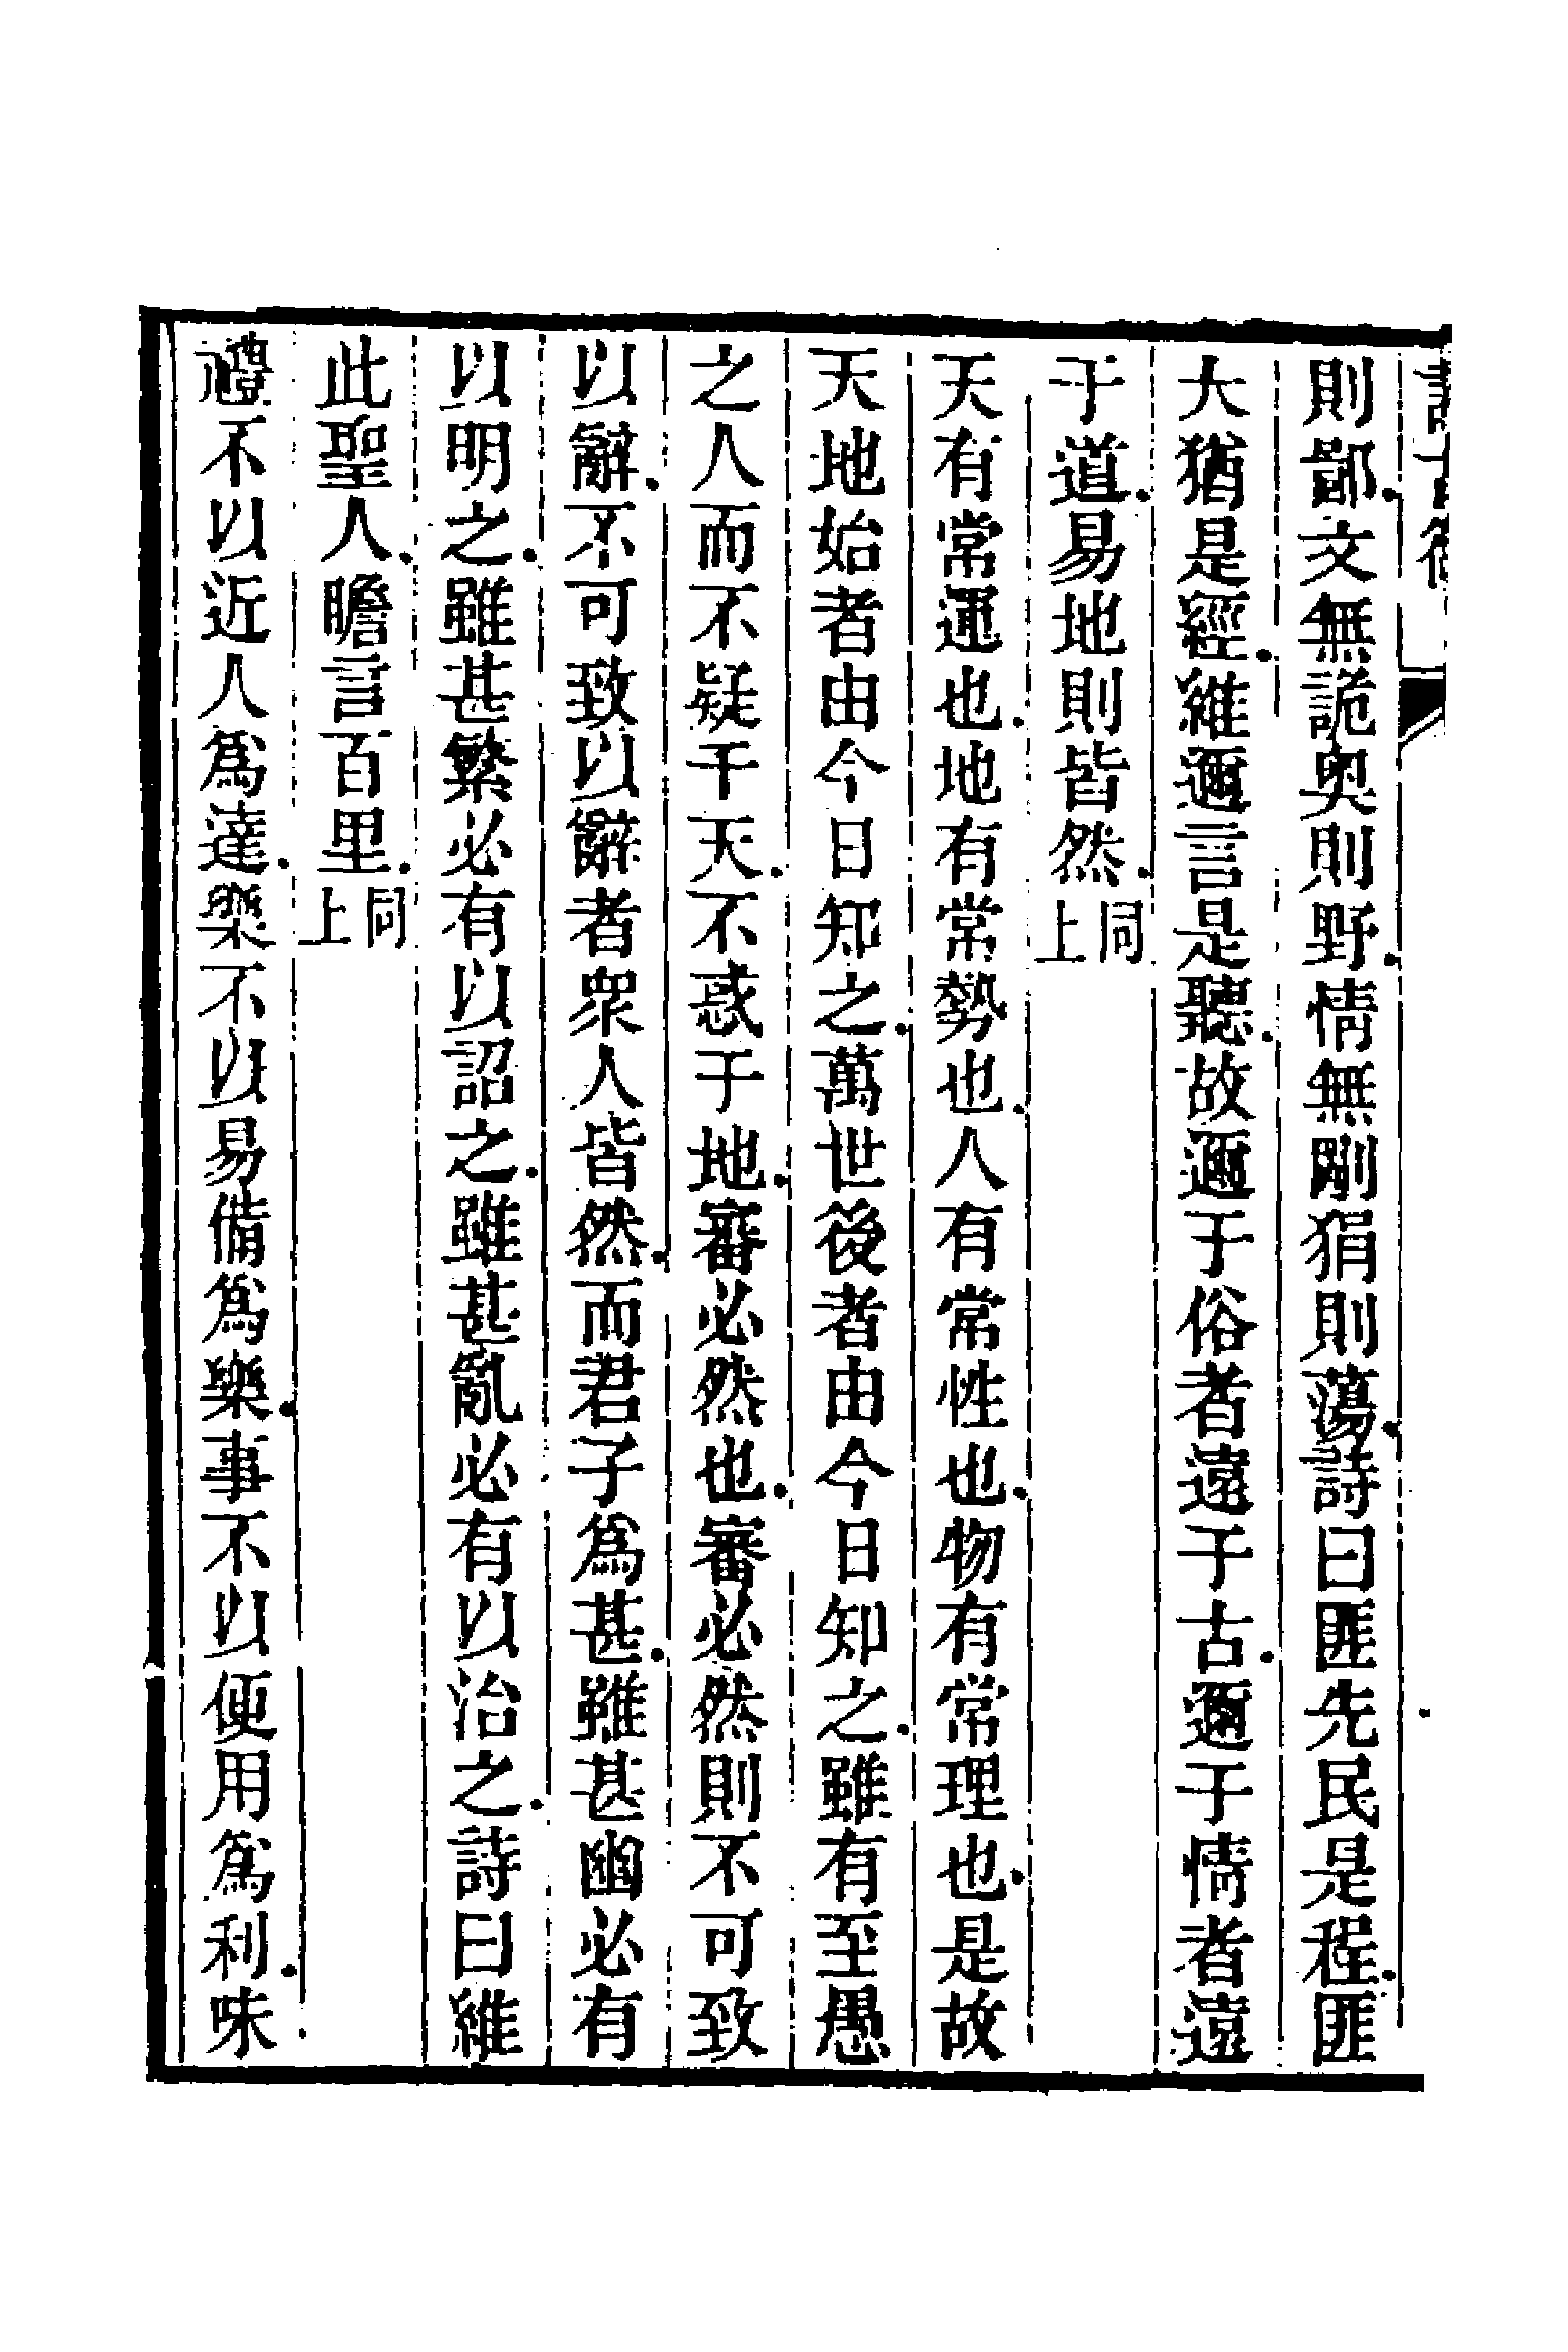 則鄙文無詭奥則野情無剛狷則蕩詩曰匪先民是程匪
大猶是經維邇言是聽故邇于俗者遠于古邇于情者遠
于道易地則皆然同上
天有常運也地有常勢也人有常性也物有常理也是故
天地始者由今日知之萬世後者由今日知之雖有至愚
之人而不疑于天不惑于地審必然也審必然則不可致
以辭不可致以辭者衆人皆然而君子爲甚雖甚幽必有
以明之雖甚繁必有以詔之雖甚亂必有以治之詩曰維
此聖人瞻言百里同上
禮不以近人爲達樂不以易備爲樂事不以便用爲利味